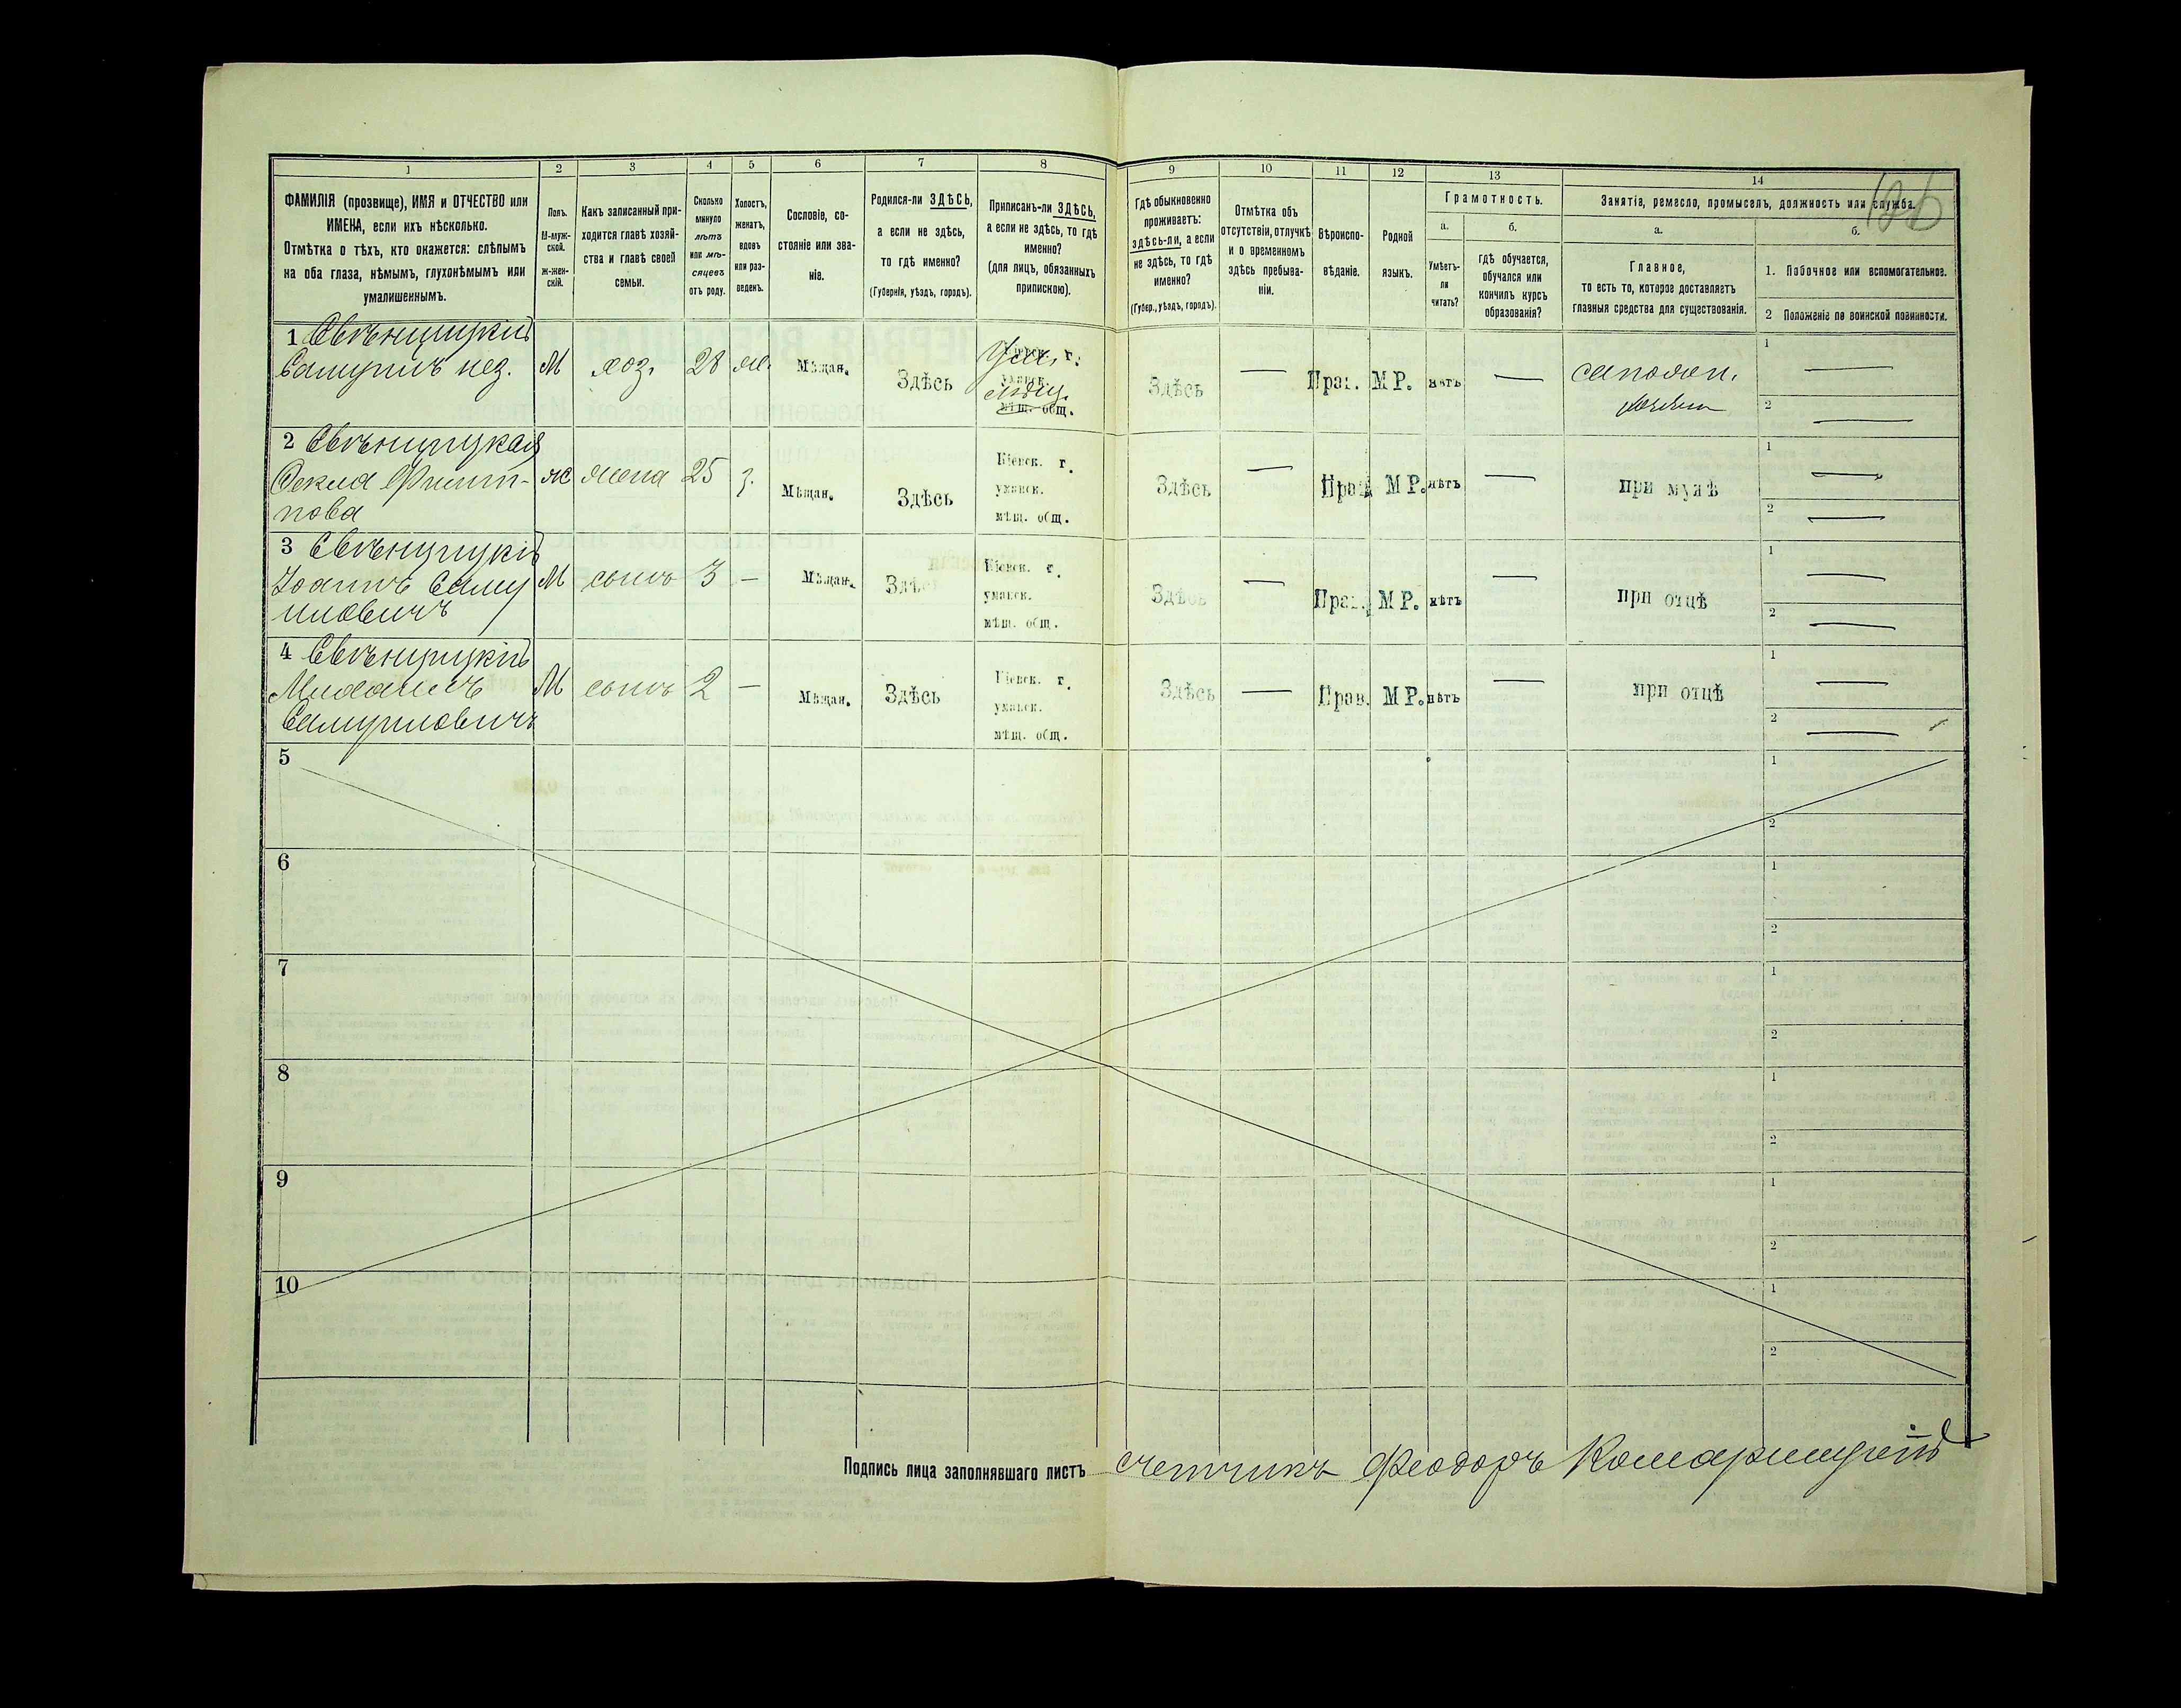 126
1 2 3 4 5 6 7 8 9 10 11 12 13 14
ФАМИЛІЯ (прозвище), ИМЯ и ОТЧЕСТВО или
ИМЕНА, если ихъ нѣсколько.
Отмѣтка о тѣхъ, кто окажется: слѣпымъ
на оба глаза, нѣмымъ, глухонѣмымъ или
умалишеннымъ.
Полъ.
М-муж-
ской.
ж-жен-
скій.
Какъ записанный при-
ходится главѣ хозяй-
ства и главѣ своей
семьи.
Сколько
минуло
лѣтъ
или мѣ-
сяцевъ
отъ роду.
Холостъ,
женатъ,
вдовъ
или раз-
веденъ.
Сословіе, со-
стояніе или зва-
ніе.
Родился-ли ЗДѢСЬ,
а если не здѣсь,
то гдѣ именно?
(Губернія, уѣздъ, городъ).
Приписанъ-ли ЗДѢСЬ,
а если не здѣсь, то гдѣ
именно?
(для лицъ, обязанныхъ
припискою).
Гдѣ обыкновенно
проживаетъ:
здѣсь-ли, а если
не здѣсь, то гдѣ
именно?
(Губер., уѣздъ, городъ).
Отмѣтка объ
отсутствіи, отлучкѣ
и о временномъ
здѣсь пребыва-
ніи.
Вѣроиспо-
вѣданіе.
Родной
языкъ.
Грамотность.
а.
Умѣетъ-
ли
читать?
б.
гдѣ обучается,
обучался или
кончилъ курсъ
образованія?
Занятія, ремесло, промыселъ, должность или служба.
а.
Главное,
то есть то, которое доставляетъ
главныя средства для существованія.
б.
1. Побочное или вспомогательное.
2 Положеніе по воинской повинности.
1 Свѣнцицкій
Самуилъ нез.
М
хоз.
28
жен.
Мѣщан.
Здѣсь
г.
общ.
Здѣсь
—
Прав.
МР.
нѣтъ
—
сапожн.
хозяин
1 —
2 —
2 Свѣнцицкая
Фекла Филип-
пова
ж
жена
25
з.
Мѣщан.
Здѣсь
Кіевск. г.
уманск.
мѣщ. общ.
Здѣсь
—
Прав.
МР.
нѣтъ
—
при мужѣ
1 —
2 —
3 Свѣнцицкій
Іоаннъ Саму
иловичъ
М
сынъ
3
—
Мѣщан.
Здѣсь
Кіевск. г.
уманск.
мѣщ. общ.
Здѣсь
—
Прав.
МР.
нѣтъ
—
при отцѣ
1 —
2 —
4 Свѣнцицкій
Михаилъ
Самуиловичъ
М
сынъ
2
—
Мѣщан.
Здѣсь
Кіевск. г.
уманск.
мѣщ. общ.
Здѣсь
—
Прав.
МР.
нѣтъ
—
при отцѣ
1 —
2 —
5
1
2
6
1
2
7
1
2
8
1
2
9
1
2
10
1
2
Подпись лица заполнявшаго листъ счетчикъ Феодоръ Комарницкій